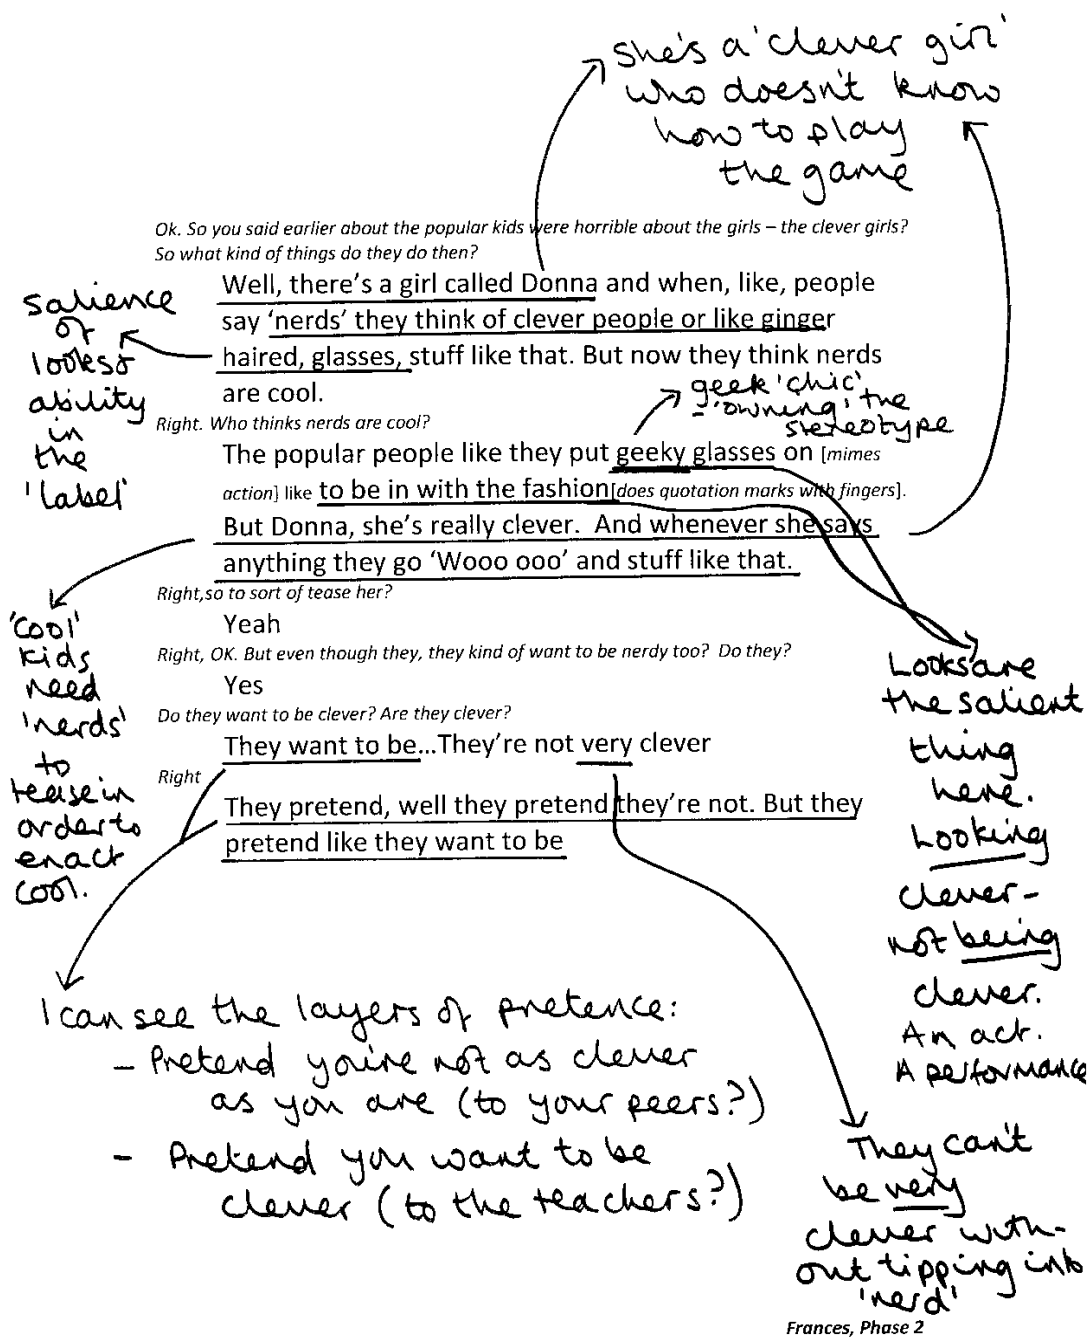 She's a 'clever girl'
who doesn't know
how to play
the game
Ok. So you said earlier about the popular kids were horrible about the girls – the clever girls?
So what kind of things do they do then?
Well, there's a girl called Donna and when, like, people
say 'nerds' they think of clever people or like ginger
haired, glasses, stuff like that. But now they think nerds
are cool.
salience
of
looks &
ability
in
the
'label'
geek 'chic'
- 'owning' the
stereotype
Right. Who thinks nerds are cool?
The popular people like they put geeky glasses on [mimes
action] like to be in with the fashion[does quotation marks with fingers].
But Donna, she's really clever.  And whenever she says
anything they go 'Wooo ooo' and stuff like that.
Right,so to sort of tease her?
Yeah
Right, OK. But even though they, they kind of want to be nerdy too?  Do they?
Yes
Do they want to be clever? Are they clever?
They want to be...They're not very clever
Right
They pretend, well they pretend they're not. But they
pretend like they want to be
'cool'
kids
need
'nerds'
to
tease in
order to
enact
cool.
Looks are
the salient
thing
here.
Looking
clever-
not being
clever.
An act.
A performance
I can see the layers of pretence:
- Pretend you're not as clever
as you are (to your peers?)
- Pretend you want to be
clever (to the teachers?)
They can't
be very
clever with-
out tipping into
'nerd'
Frances, Phase 2